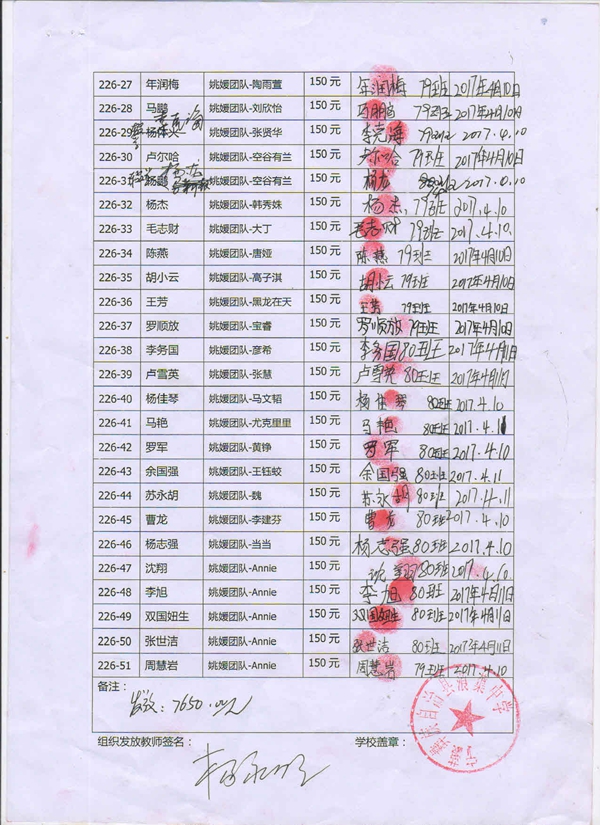 226-27 年润梅 姚媛团队-陶雨萱 150 元 年润梅 79班 2017年4月10日
226-28 马鹏 姚媛团队-刘欣怡 150 元 79班 2017年4月10日
226-29 张贤华 150 元 李克海 79班 2017.4.10
226-30 卢尔哈 姚媛团队-空谷有兰 150 元 79班 2017年4月10日
226-31 姚媛团队-空谷有兰 150 元 杨龙 2017.4.10
226-32 杨杰 姚媛团队-韩秀姝 150 元 杨杰 79班 2017.4.10
226-33 毛志财 姚媛团队-大丁 150 元 毛志财 79班 2017.4.10
226-34 陈燕 姚媛团队-唐娅 150 元 陈燕 79班 2017年4月10日
226-35 胡小云 姚媛团队-高子淇 150 元 胡小云 79班 2017年4月10日
226-36 王芳 姚媛团队-黑龙在天 150 元 王芳 79班 2017年4月10日
226-37 罗顺放 姚媛团队-宝睿 150 元 罗顺放 79班 2017年4月10日
226-38 李务国 姚媛团队-彦希 150 元 李务国 80班 2017年4月11日
226-39 卢雪英 姚媛团队-张慧 150 元 卢雪英 80班 2017年4月11日
226-40 杨佳琴 姚媛团队-马文韬 150 元 杨佳琴 80班 2017.4.10
226-41 马艳 姚媛团队-尤克里里 150 元 马艳 80班 2017.4.11
226-42 罗军 姚媛团队-黄铮 150 元 罗军 80班 2017.4.10
226-43 余国强 姚媛团队-王钰蛟 150 元 余国强 80班 2017.4.11
226-44 苏永胡 姚媛团队-魏 150 元 苏永胡 80班 2017.4.11
226-45 曹龙 姚媛团队-李建芬 150 元 曹龙 80班 2017.4.10
226-46 杨志强 姚媛团队-当当 150 元 杨志强 80班 2017.4.10
226-47 沈翔 姚媛团队-Annie 150 元 沈翔 80班 2017.4.10
226-48 李旭 姚媛团队-Annie 150 元 李旭 80班 2017年4月11日
226-49 双国妞生 姚媛团队-Annie 150 元 双国妞生 80班 2017年4月11日
226-50 张世洁 姚媛团队-Annie 150 元 张世洁 80班 2017年4月11日
226-51 周慧岩 姚媛团队-Annie 150 元 周慧岩 79班 2017.4.10
备注：
发放：7650.00元
组织发放教师签名： 学校盖章：